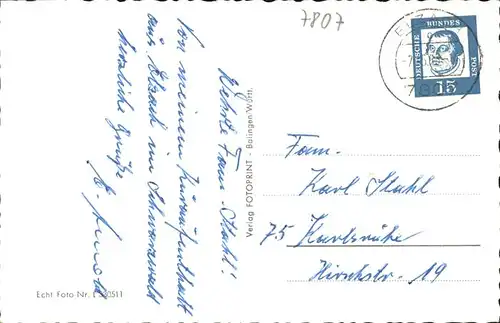 7807
DEUTSCHE
BUNDES
POST
15
Werte Fam. Stahl!
Von meinem Kuraufenthalt
aus Elzach im Schwarzwald
herzliche Grüße
Verlag FOTOPRINT - Balingen Württ.
Fam.
Karl Stahl
75 Karlsruhe
Hirschstr. 19
Echt Foto Nr.